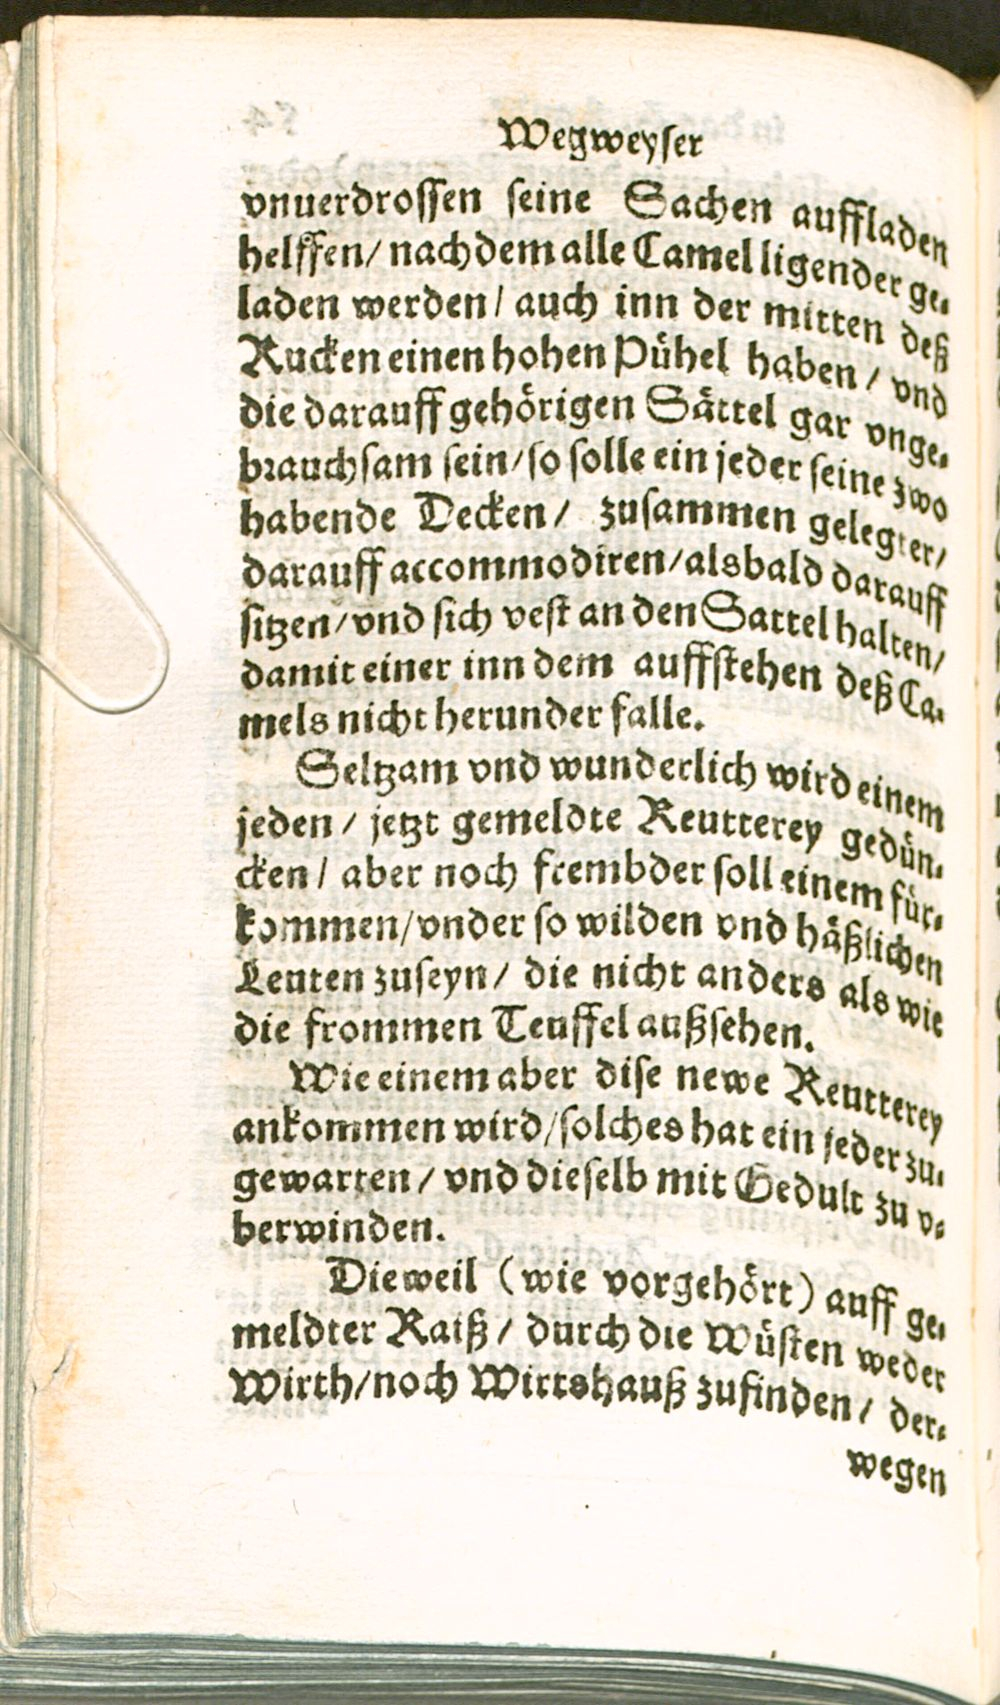 Wegweyser
vnuerdrossen seine Sachen auffladen
helffen/ nachdem alle Camel ligender ge⸗
laden werden/ auch inn der mitten deß
Rucken einen hohen Pühel haben/ vnd
die darauff gehörigen Sättel gar vnge⸗
brauchsam sein/ so solle ein jeder seine zwo
habende Decken/ zusammen gelegter/
darauff accommodiren/ alsbald darauff
sitzen/ vnd sich vest an den Sattel halten/
damit einer inn dem auffstehen deß Ca⸗
mels nicht herunder falle.
Seltzam vnd wunderlich wird einem
jeden/ jetzt gemeldte Reutterey gedün⸗
cken/ aber noch frembder soll einem für⸗
kommen/ vnder so wilden vnd häßlichen
Leuten zuseyn/ die nicht anders als wie
die frommen Teuffel außsehen.
Wie einem aber dise newe Reutterey
ankommen wird/ solches hat ein jeder zu⸗
gewarten/ vnd dieselb mit Gedult zu v⸗
berwinden.
Dieweil (wie vorgehört) auff ge⸗
meldter Raiß/ durch die Wüsten weder
Wirth/ noch Wirtshauß zufinden/ der⸗
wegen